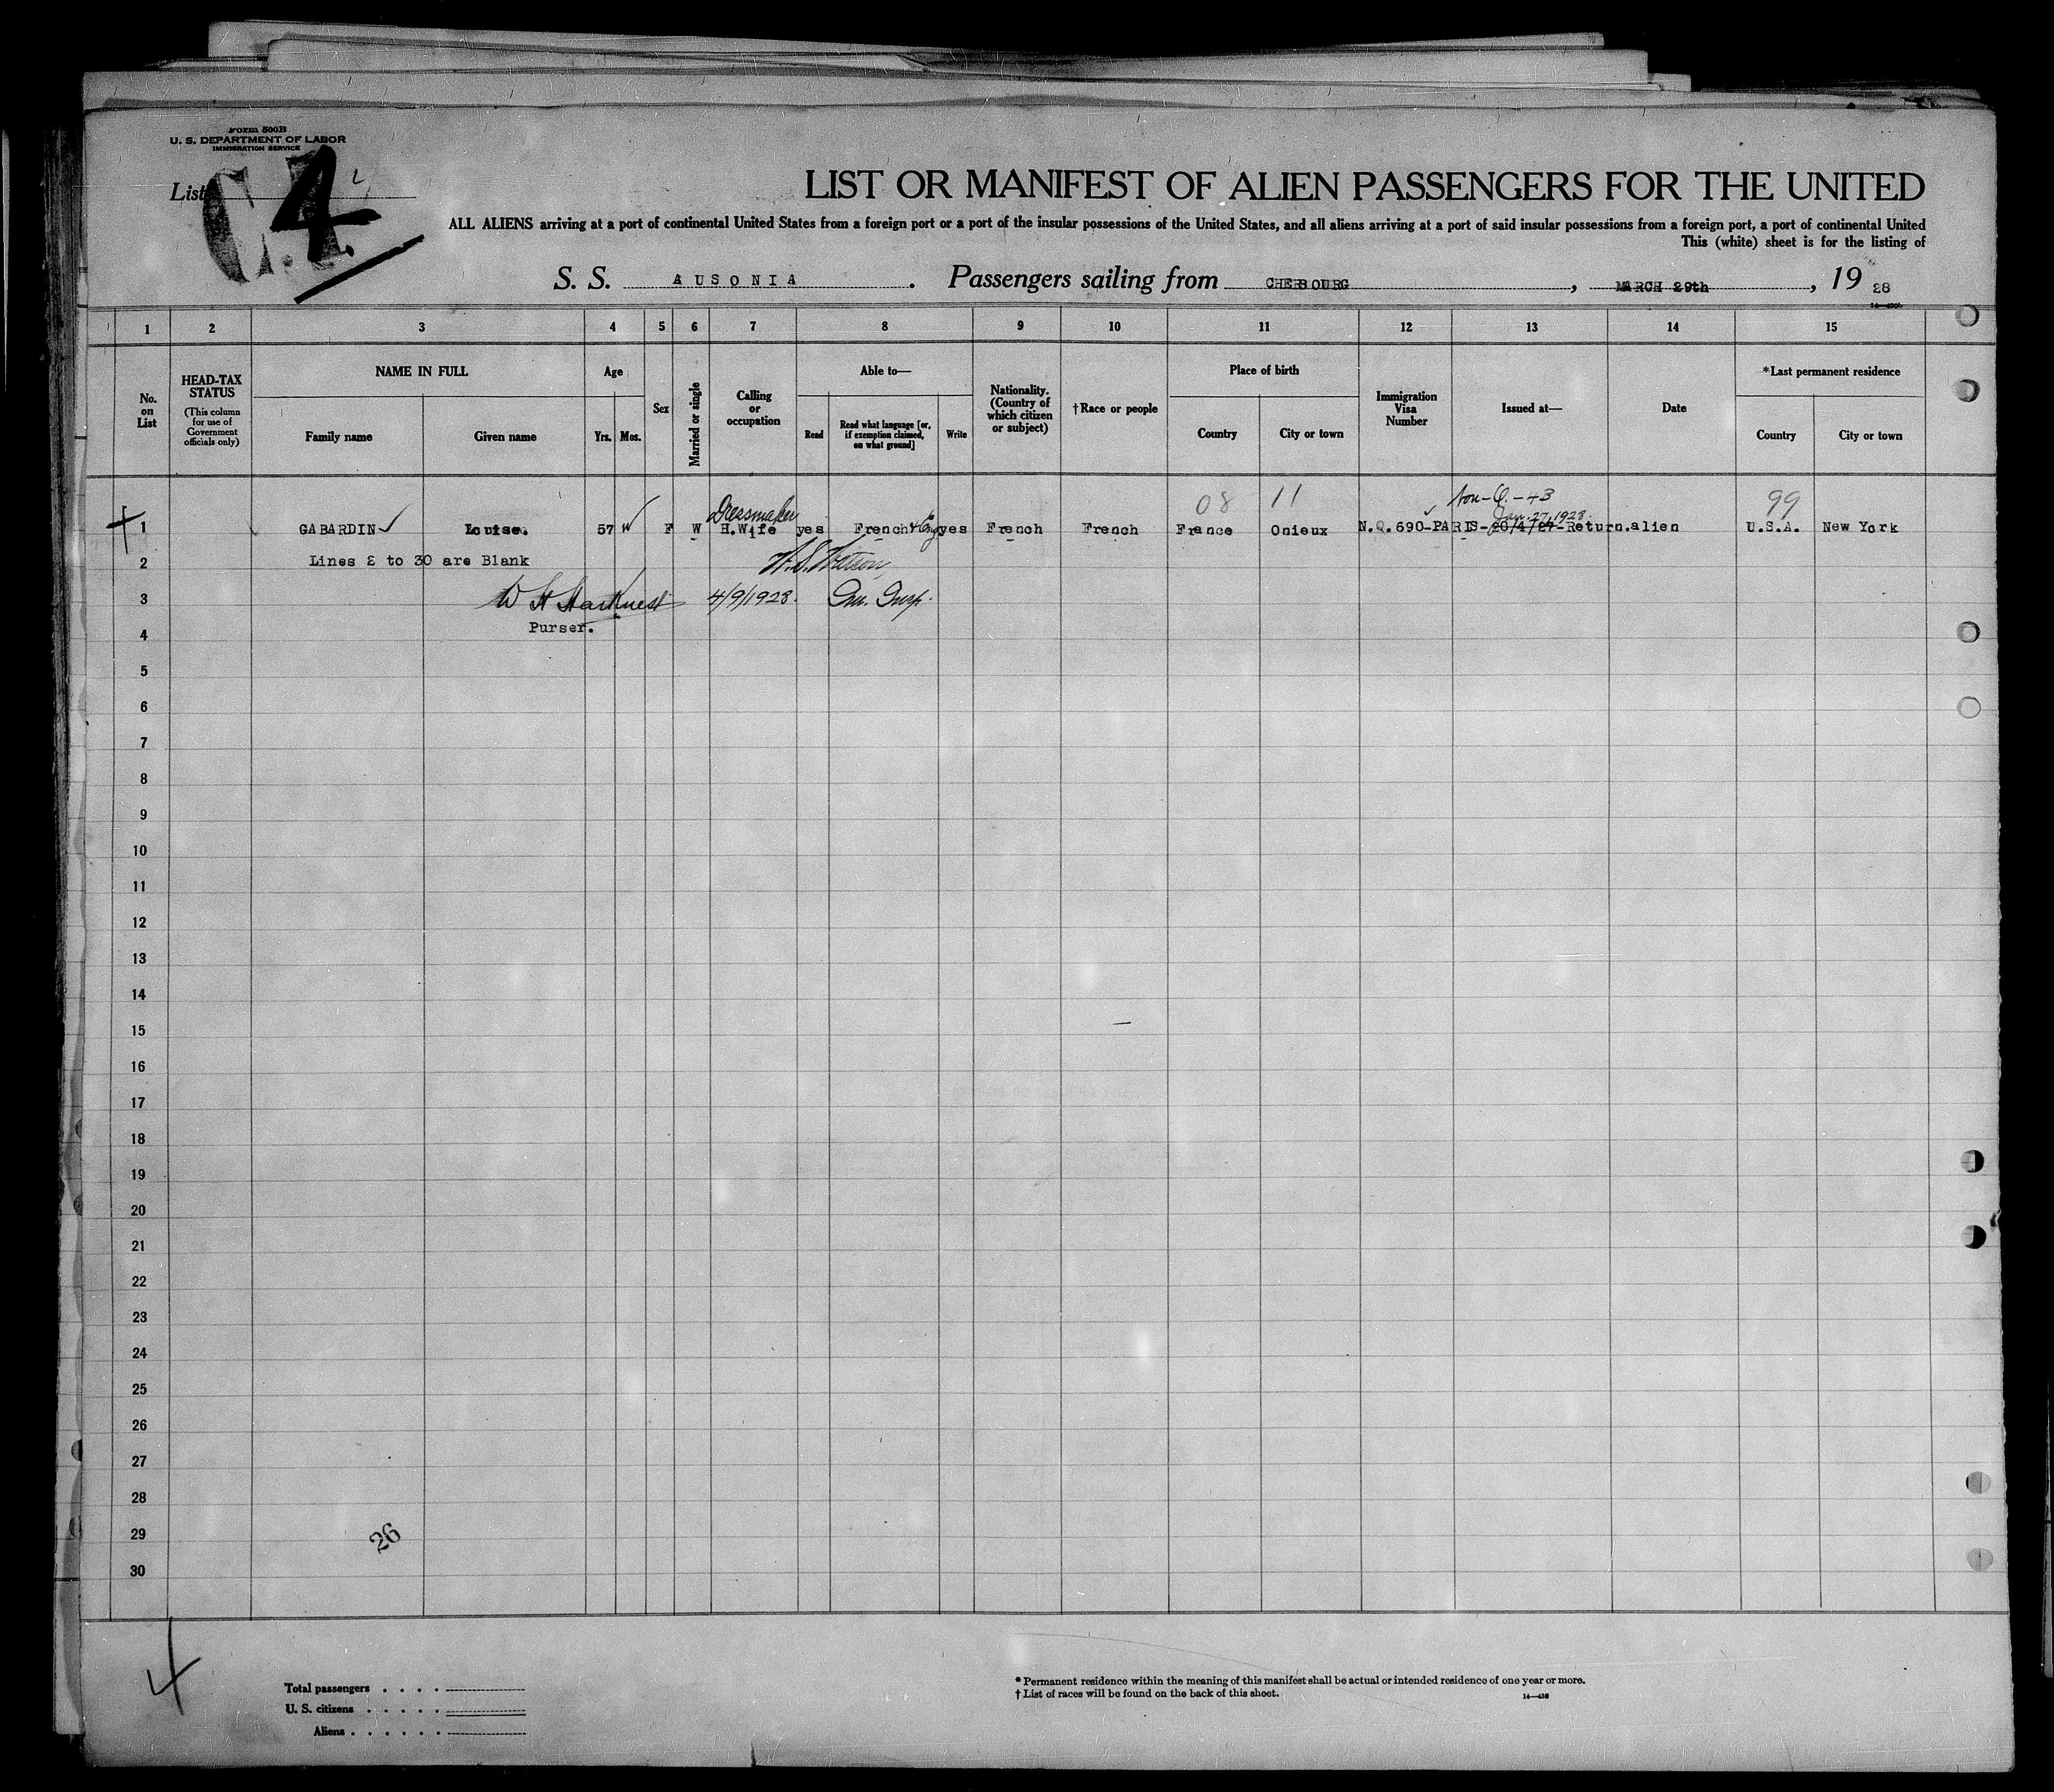 Form 500B
U. S. DEPARTMENT OF LABOR
IMMIGRATION SERVICE
List 4
LIST OR MANIFEST OF ALIEN PASSENGERS FOR THE UNITED
ALL ALIENS arriving at a port of continental United States from a foreign port or a port of the insular possessions of the United States, and all aliens arriving at a port of said insular possessions from a foreign port, a port of continental United
This (white) sheet is for the listing of
S. S. AUSONIA . Passengers sailing from CHERBOURG , MARCH 29th , 19 28
1 2 3 4 5 6 7 8 9 10 11 12 13 14 15
No. on List
HEAD-TAX STATUS
(This column for use of Government officials only)
NAME IN FULL
Family name Given name
Age
Yrs. Mos.
Sex
Married or single
Calling or occupation
Able to—
Read
Read what language [or, if exemption claimed, on what ground]
Write
Nationality. (Country of which citizen or subject)
†Race or people
Place of birth
Country City or town
Immigration Visa Number
Issued at—
Date
*Last permanent residence
Country City or town
Dressmaker 08 11 Non-Q.-4B 99
Jan. 27, 1928
1 GABARDIN Louise. 57 F W H.Wife yes French & Eng yes French French France Onieux N.Q.690-PARIS-20/4/27-Return.alien U.S.A. New York
2 Lines 2 to 30 are Blank W. S. Watson
3 W H Harkness 4/9/1928. Imm. Insp.
Purser.
4
5
6
7
8
9
10
11
12
13
14
15
16
17
18
19
20
21
22
23
24
25
26
27
28
29
26
30
4
Total passengers . . . .
U. S. citizens . . . . .
Aliens . . . . . .
* Permanent residence within the meaning of this manifest shall be actual or intended residence of one year or more.
† List of races will be found on the back of this sheet.
14—438